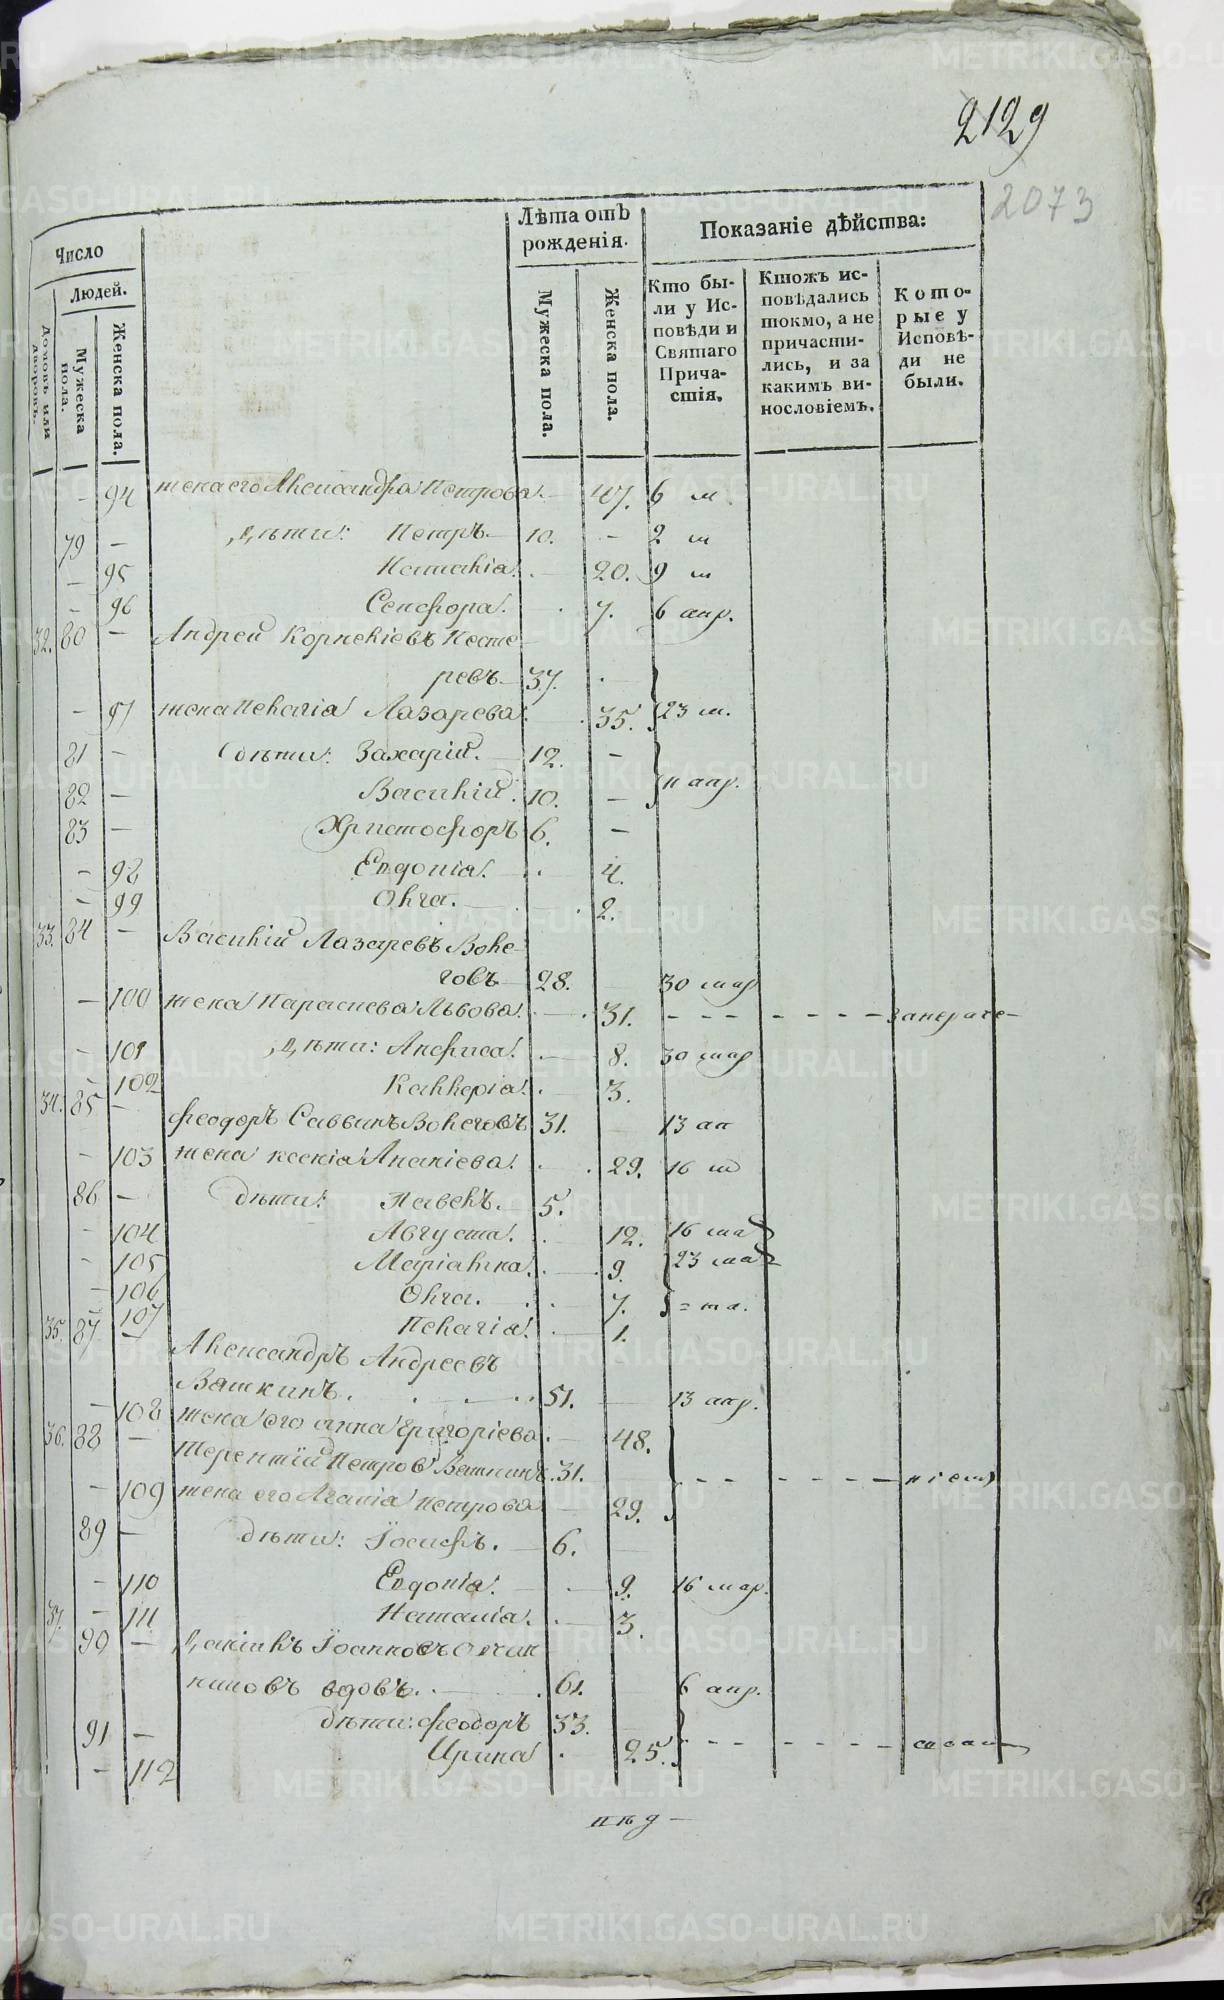 2129
2073
Число
Людей.
Домовъ или дворовъ.
Мужеска пола.
Женска пола.
Лѣта отъ рожденія.
Мужеска пола.
Женска пола.
Показаніе дѣйства:
Кто бы-
ли у Ис-
повѣди и
Святаго
Прича-
стія.
Ктожъ ис-
повѣдались
токмо, а не
причасти-
лись, и за
какимъ ви-
нословіемъ.
Кото-
рые у
Исповѣ-
ди не
были.
- 94 жена его Александра Петрова. 47. 6 м
79 - дѣти: Петръ 10. - 2 м
- 95 Наталія. 20. 9 м
- 96 Сепфора. 7. 6 апр.
32. 80 - Андрей Корниліевъ Несте-
ревъ 37. -
- 97 жена Пелагія Лазарева 35. 23 м.
81 - дѣти: Захарій. 12. -
82 - Василій. 10. - 11 апр.
83 - Христофоръ 6. -
- 98 Евдокія. 4.
- 99 Ольга. 2.
33. 84 - Василій Лазаревъ Воле-
говъ 28. 30 мар
- 100 жена Параскева Львова. 31. - - - - - - -
- 101 дѣти: Анфиса. 8. 30 мар
- 102 Каллерія. 3.
34. 85 - Феодоръ Саввинъ Волеговъ 31. 13 ап
- 103 жена Ксенія Ананіева. 29. 16 м
86 - дѣти: Павелъ. 5.
- 104 Августа. 12. 16 ма
- 105 Маріамна. 9. 23 ма
- 106 Ольга. 7.
- 107 Пелагія. 1.
35. 87 - Александръ Андреевъ
Вяткинъ. 51. 13 апр.
- 108 жена его Анна Григоріева 48.
36. 88 - Терентій Петровъ Вяткинъ. 31. - - - - - -
- 109 жена его Агапія Петрова 29.
89 - дѣти: Іосифъ. 6.
- 110 Евдокія. 9. 16 мар.
- 111 Наталія. 3.
37. 90 - Даніилъ Іоанновъ
вдовъ. 61. 6 апр.
91 - дѣти: Феодоръ 33.
- 112 Ирина 25. - - - - - -
METRIKI.GASO-URAL.RU